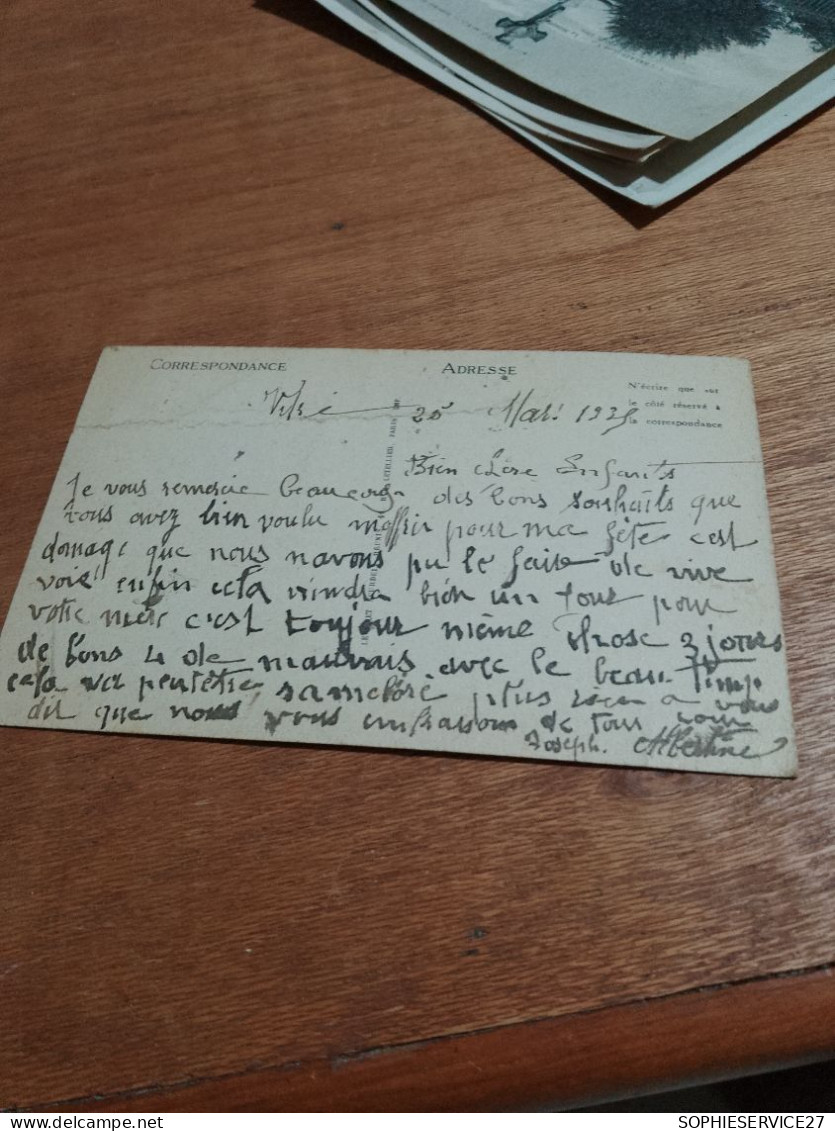 CORRESPONDANCE
ADRESSE
N'écrire que sur
le côté réservé à
la correspondance
25 Mars
Bien Chère Enfants
Je vous remercie beaucoup des bons souhaits que
vous avez bien voulu moffrir pour ma fête c'est
domage que nous navons pu le faire de vive
voie enfin cela viendra bien un jour pour
votre mère c'est toujour même chose 3 jours
de bons 4 de mauvais avec le beau Temp
cela va peutêtre sameliore plus rien a vous
dit que nous vous embrassons de tous
Joseph. Albertine
SOPHIESERVICE27